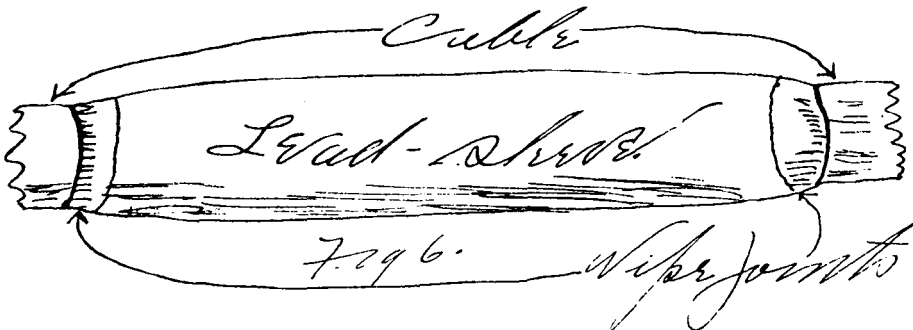 Cable
Lead-sleeve
Fig 6.
Wipe joints